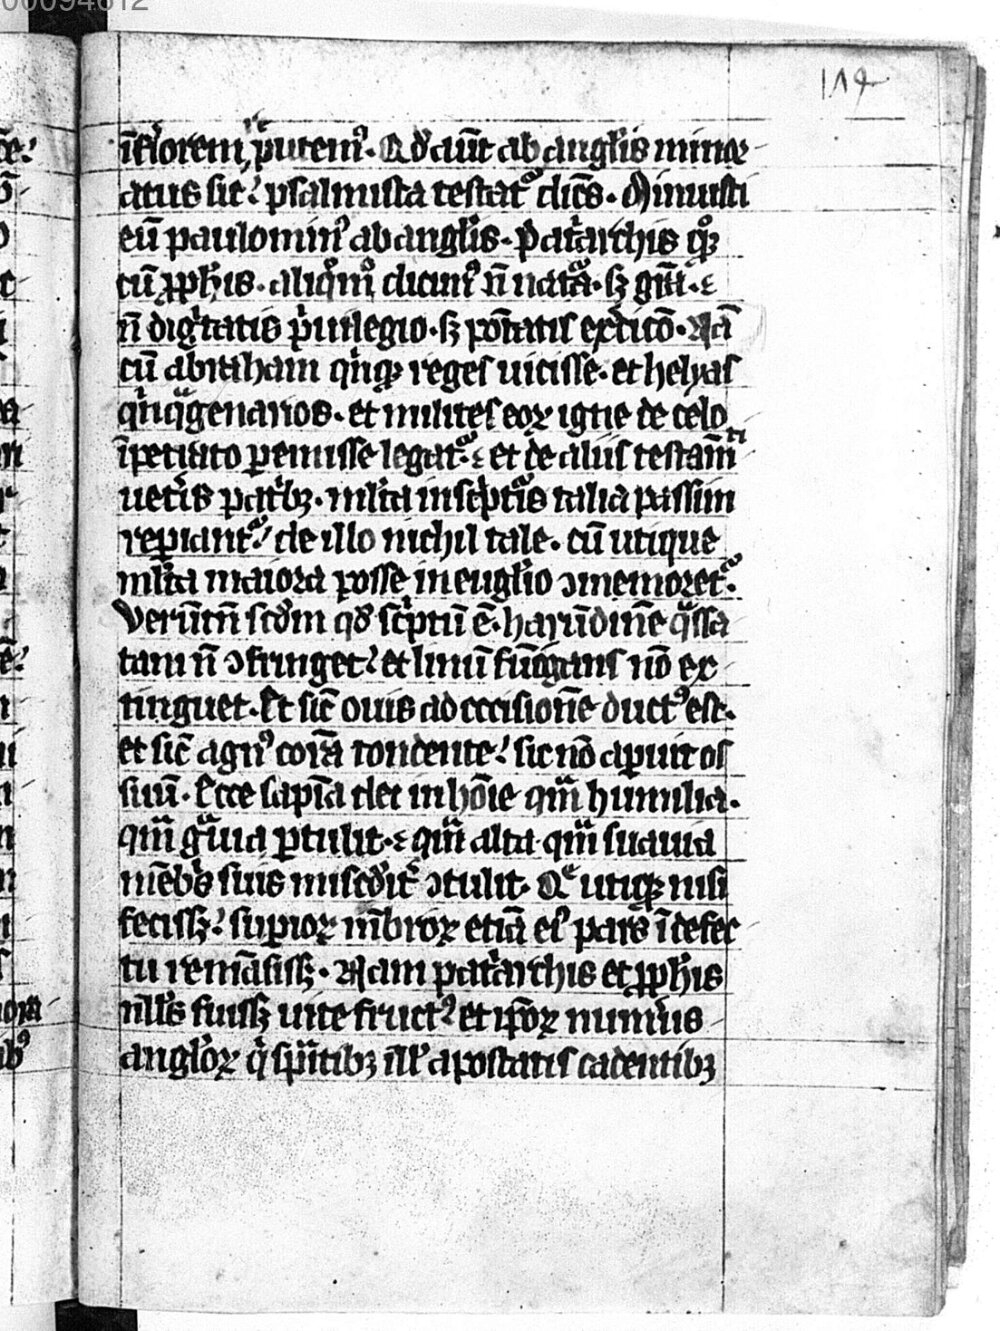 00094612
119
īf̄iorem putem᷒. Qd̓ aūt ab angl̓is minor
atus sit? psalmista testat᷒ dicēs. Minuisti
eū paulomin᷒ ab angl̓is. Pat̓archis q̊ꝫ
cū ꝓph̓is. aliq̊m̓ dicim᷒ n̄ natᷓa. sꝫ grā. ⁊
n̄ dig̓tatis p̓uilegio. sꝫ potatis
cū abraham q̓nqꝫ reges uicisse. et helyas
q̓nqᷓgenarios. et milites eoꝝ igne de celo
īpetrato pemisse legat᷒. ⁊ et de aliis testam̄ti
uet̓is pat̓bꝫ. ml̓ta in sc̓ptᷓis talia passim
repiant᷒? de illo nichil tale. cū utique
ml̓ta maiora posse in euangl̓io ɔmemoret᷒.
Verūtn̄ scd̓m qd̓ sc̓ptū ē. harūdinē qᷓssa
tam n̄ ɔfringet? et linū fumigans nō ex
tinguet. Et sic̄ ouis ad occisionē duct᷒ est.
et sic̄ agn᷒ corā tondente? sic nō apuit os
suū. Ecce sapīa dei in hōie qm̄ humilia.
qm̄ gᷓuia ptulit. ⁊ qm̄ alta qm̄ suauia
mēb̓s suis misc̓dit̓ ɔtulit. Qe utiqꝫ nisi
fecissꝫ? supioꝝ mēbroꝝ etiā ei᷒ pars ī defec
tu remāsissꝫ. Nam pat̓archis et ꝓph̓is
nll̓s fuissꝫ uite fruct᷒? et ip̄oꝝ num̓us
angl̓oꝝ q̓ sp̄itibꝫ ill̓ apostatis cadentibꝫ